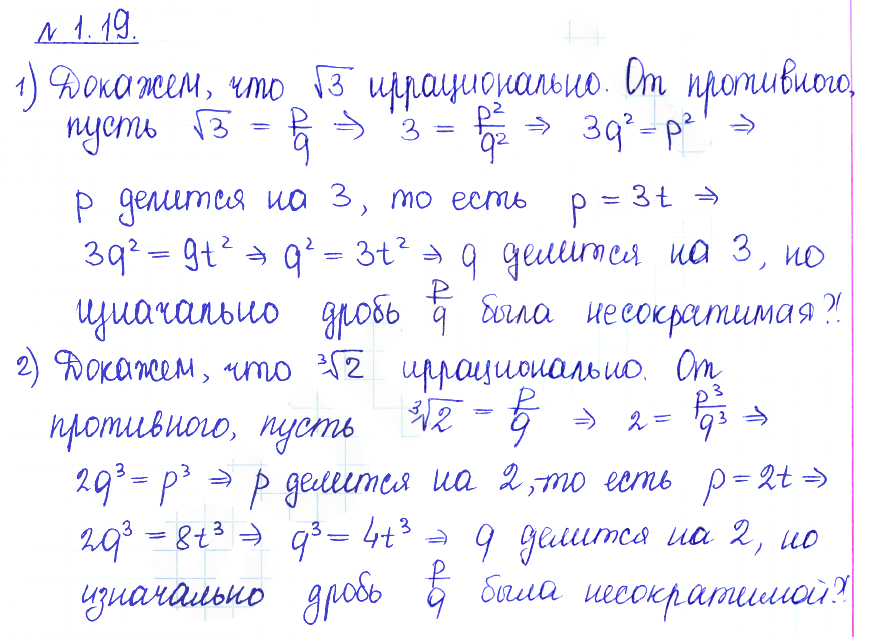 № 1.19.
1) Докажем, что √3 иррационально. От противного,
пусть √3 = p/q ⇒ 3 = p²/q² ⇒ 3q² = p² ⇒
p делится на 3, то есть p = 3t ⇒
3q² = 9t² ⇒ q² = 3t² ⇒ q делится на 3, но
изначально дробь p/q была несократимая?!
2) Докажем, что ∛2 иррационально. От
противного, пусть ∛2 = p/q ⇒ 2 = p³/q³ ⇒
2q³ = p³ ⇒ p делится на 2, то есть p = 2t ⇒
2q³ = 8t³ ⇒ q³ = 4t³ ⇒ q делится на 2, но
изначально дробь p/q была несократимой?!